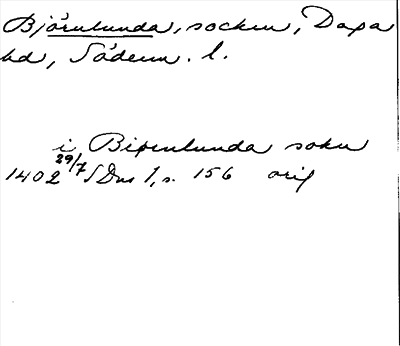 Björnlunda, socken, Daga
hd, Söderm. l.
i Biornlunda sokn
1402 29/7 SDns 1, s. 156 orig